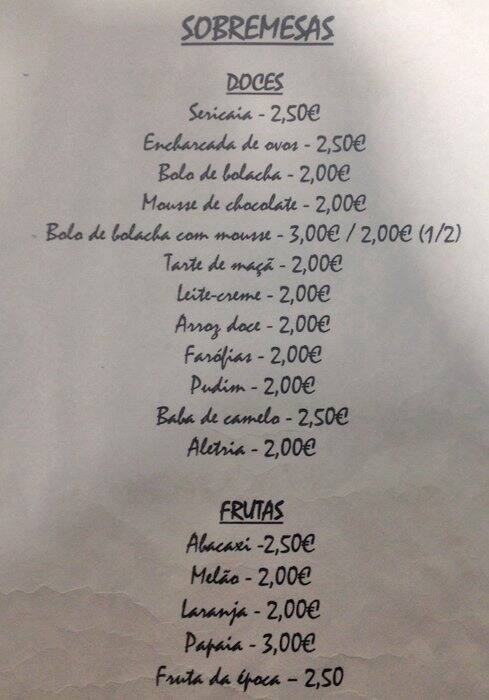 SOBREMESAS
DOCES
Sericaia - 2,50€
Encharcada de ovos - 2,50€
Bolo de bolacha - 2,00€
Mousse de chocolate - 2,00€
Bolo de bolacha com mousse - 3,00€ / 2,00€ (1/2)
Tarte de maçã - 2,00€
Leite-creme - 2,00€
Arroz doce - 2,00€
Farófias - 2,00€
Pudim - 2,00€
Baba de camelo - 2,50€
Aletria - 2,00€
FRUTAS
Abacaxi -2,50€
Melão - 2,00€
Laranja - 2,00€
Papaia - 3,00€
Fruta da época – 2,50